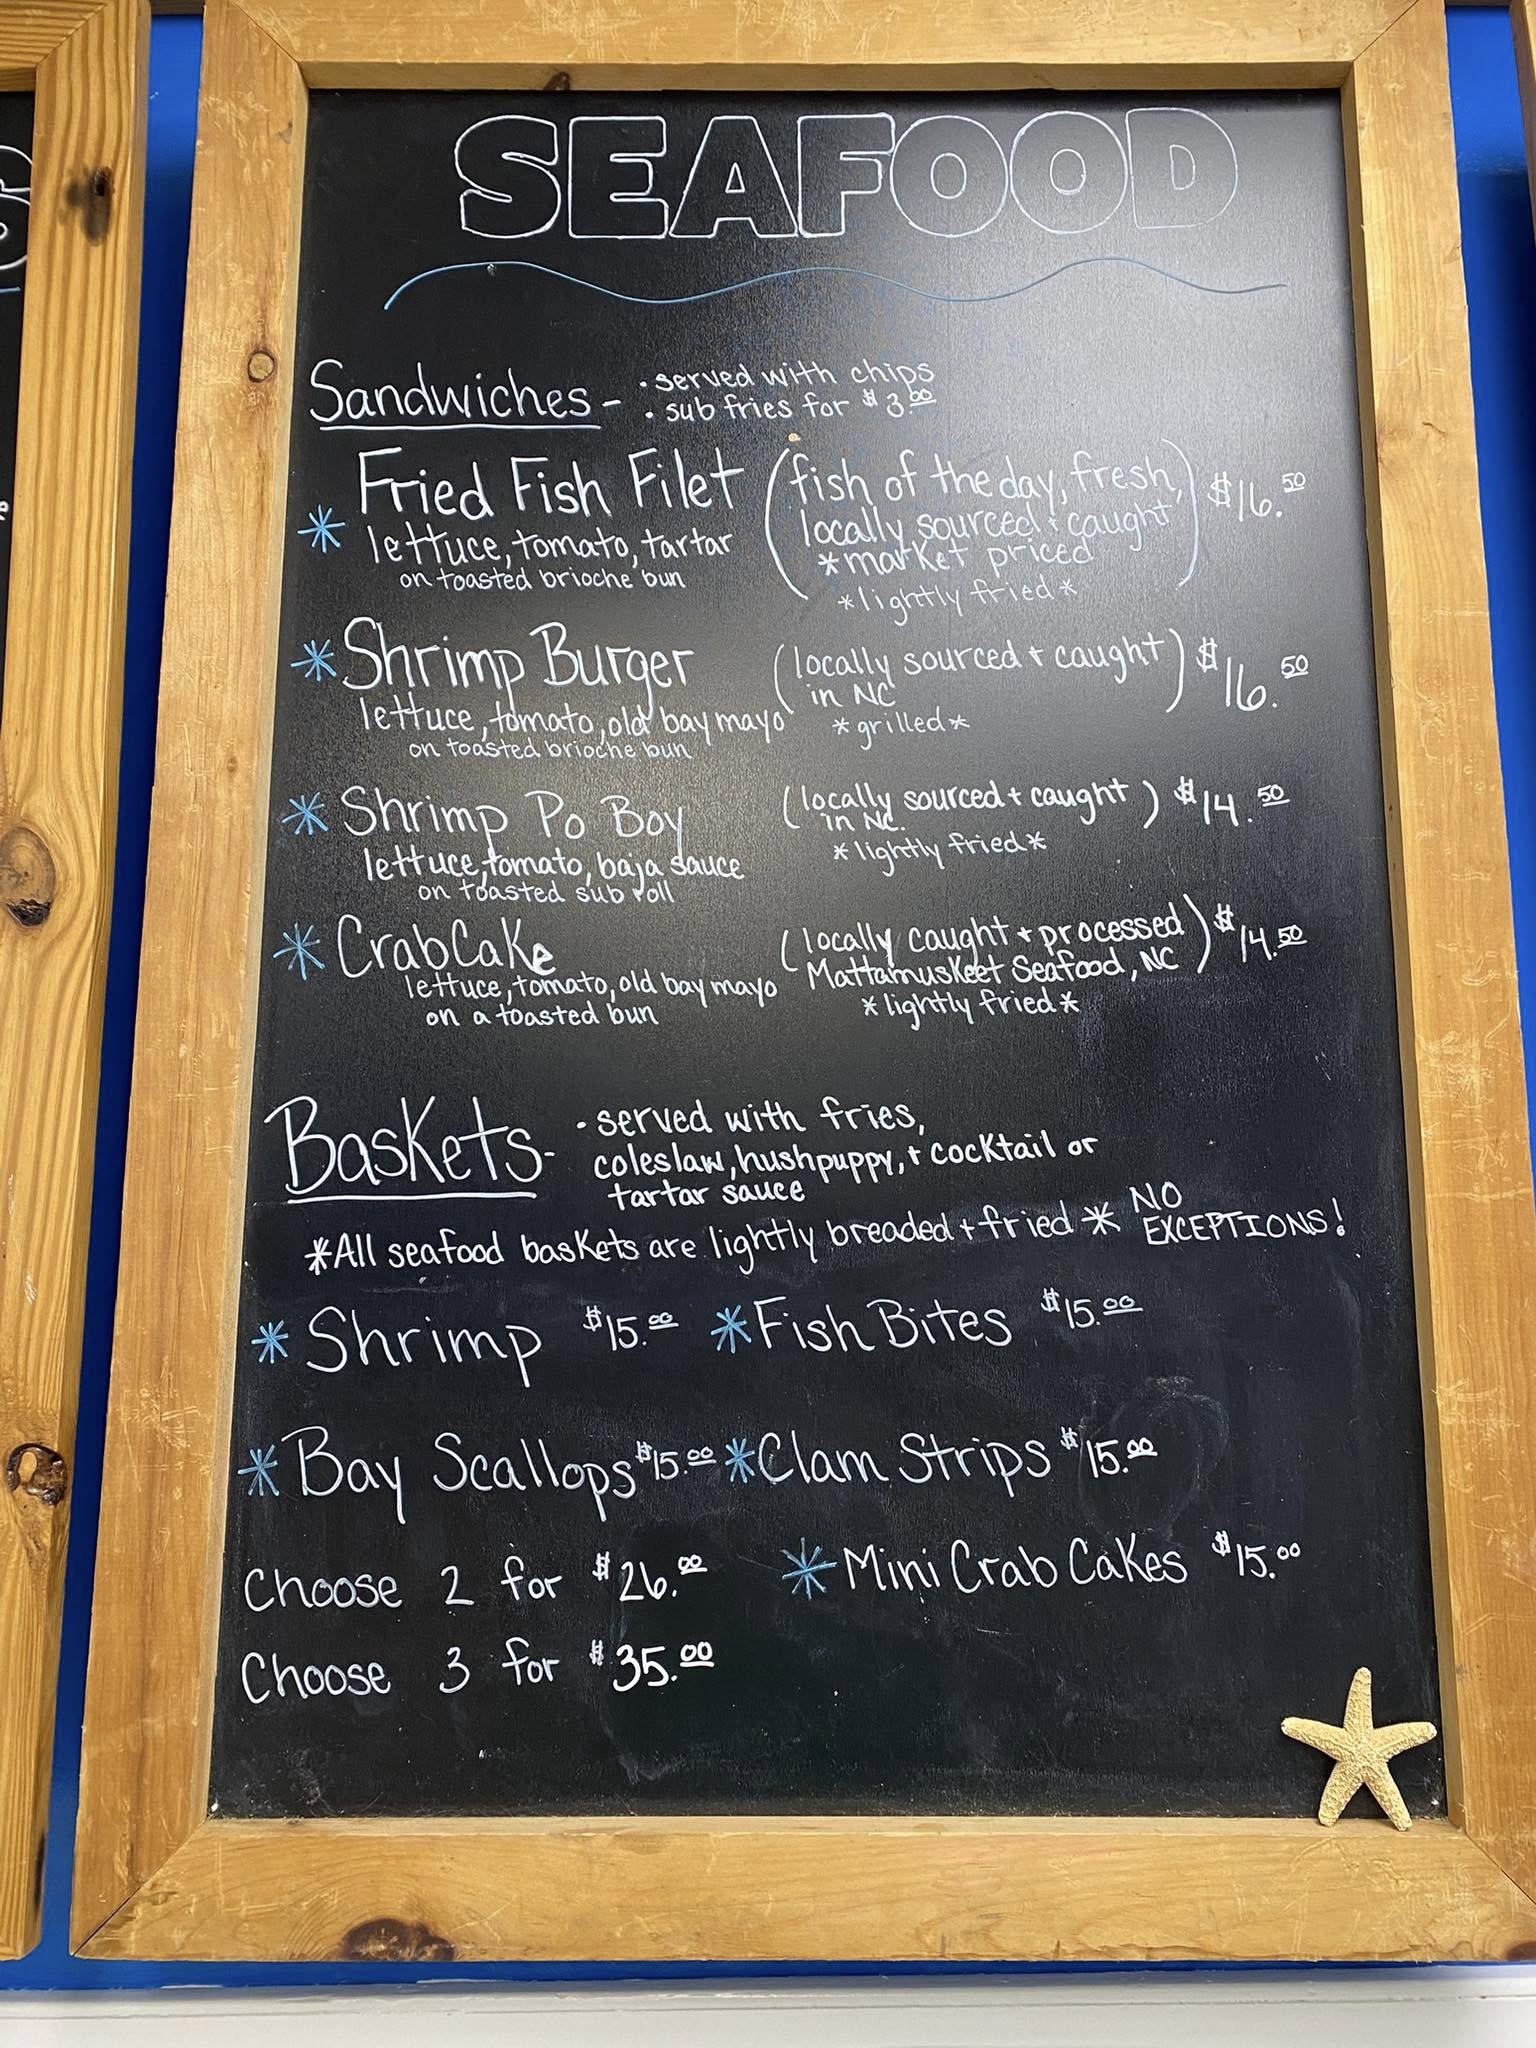 S
SEAFOOD
Sandwiches - · served with chips
· sub fries for $3.00
* Fried Fish Filet (fish of the day, fresh, $16.50
lettuce, tomato, tartar locally sourced + caught)
on toasted brioche bun *market priced
*lightly fried*
* Shrimp Burger (locally sourced + caught) $16.50
lettuce, tomato, old bay mayo in NC
on toasted brioche bun *grilled*
* Shrimp Po Boy (locally sourced + caught) $14.50
lettuce, tomato, baja sauce in NC.
on toasted sub roll *lightly fried*
* CrabCake (locally caught + processed) $14.50
lettuce, tomato, old bay mayo Mattamuskeet Seafood, NC
on a toasted bun *lightly fried*
Baskets - · served with fries,
coleslaw, hushpuppy, + cocktail or
tartar sauce
*All seafood baskets are lightly breaded + fried * NO
EXCEPTIONS!
* Shrimp $15.00 * Fish Bites $15.00
* Bay Scallops $15.00 * Clam Strips $15.00
Choose 2 for $26.00 * Mini Crab Cakes $15.00
Choose 3 for $35.00